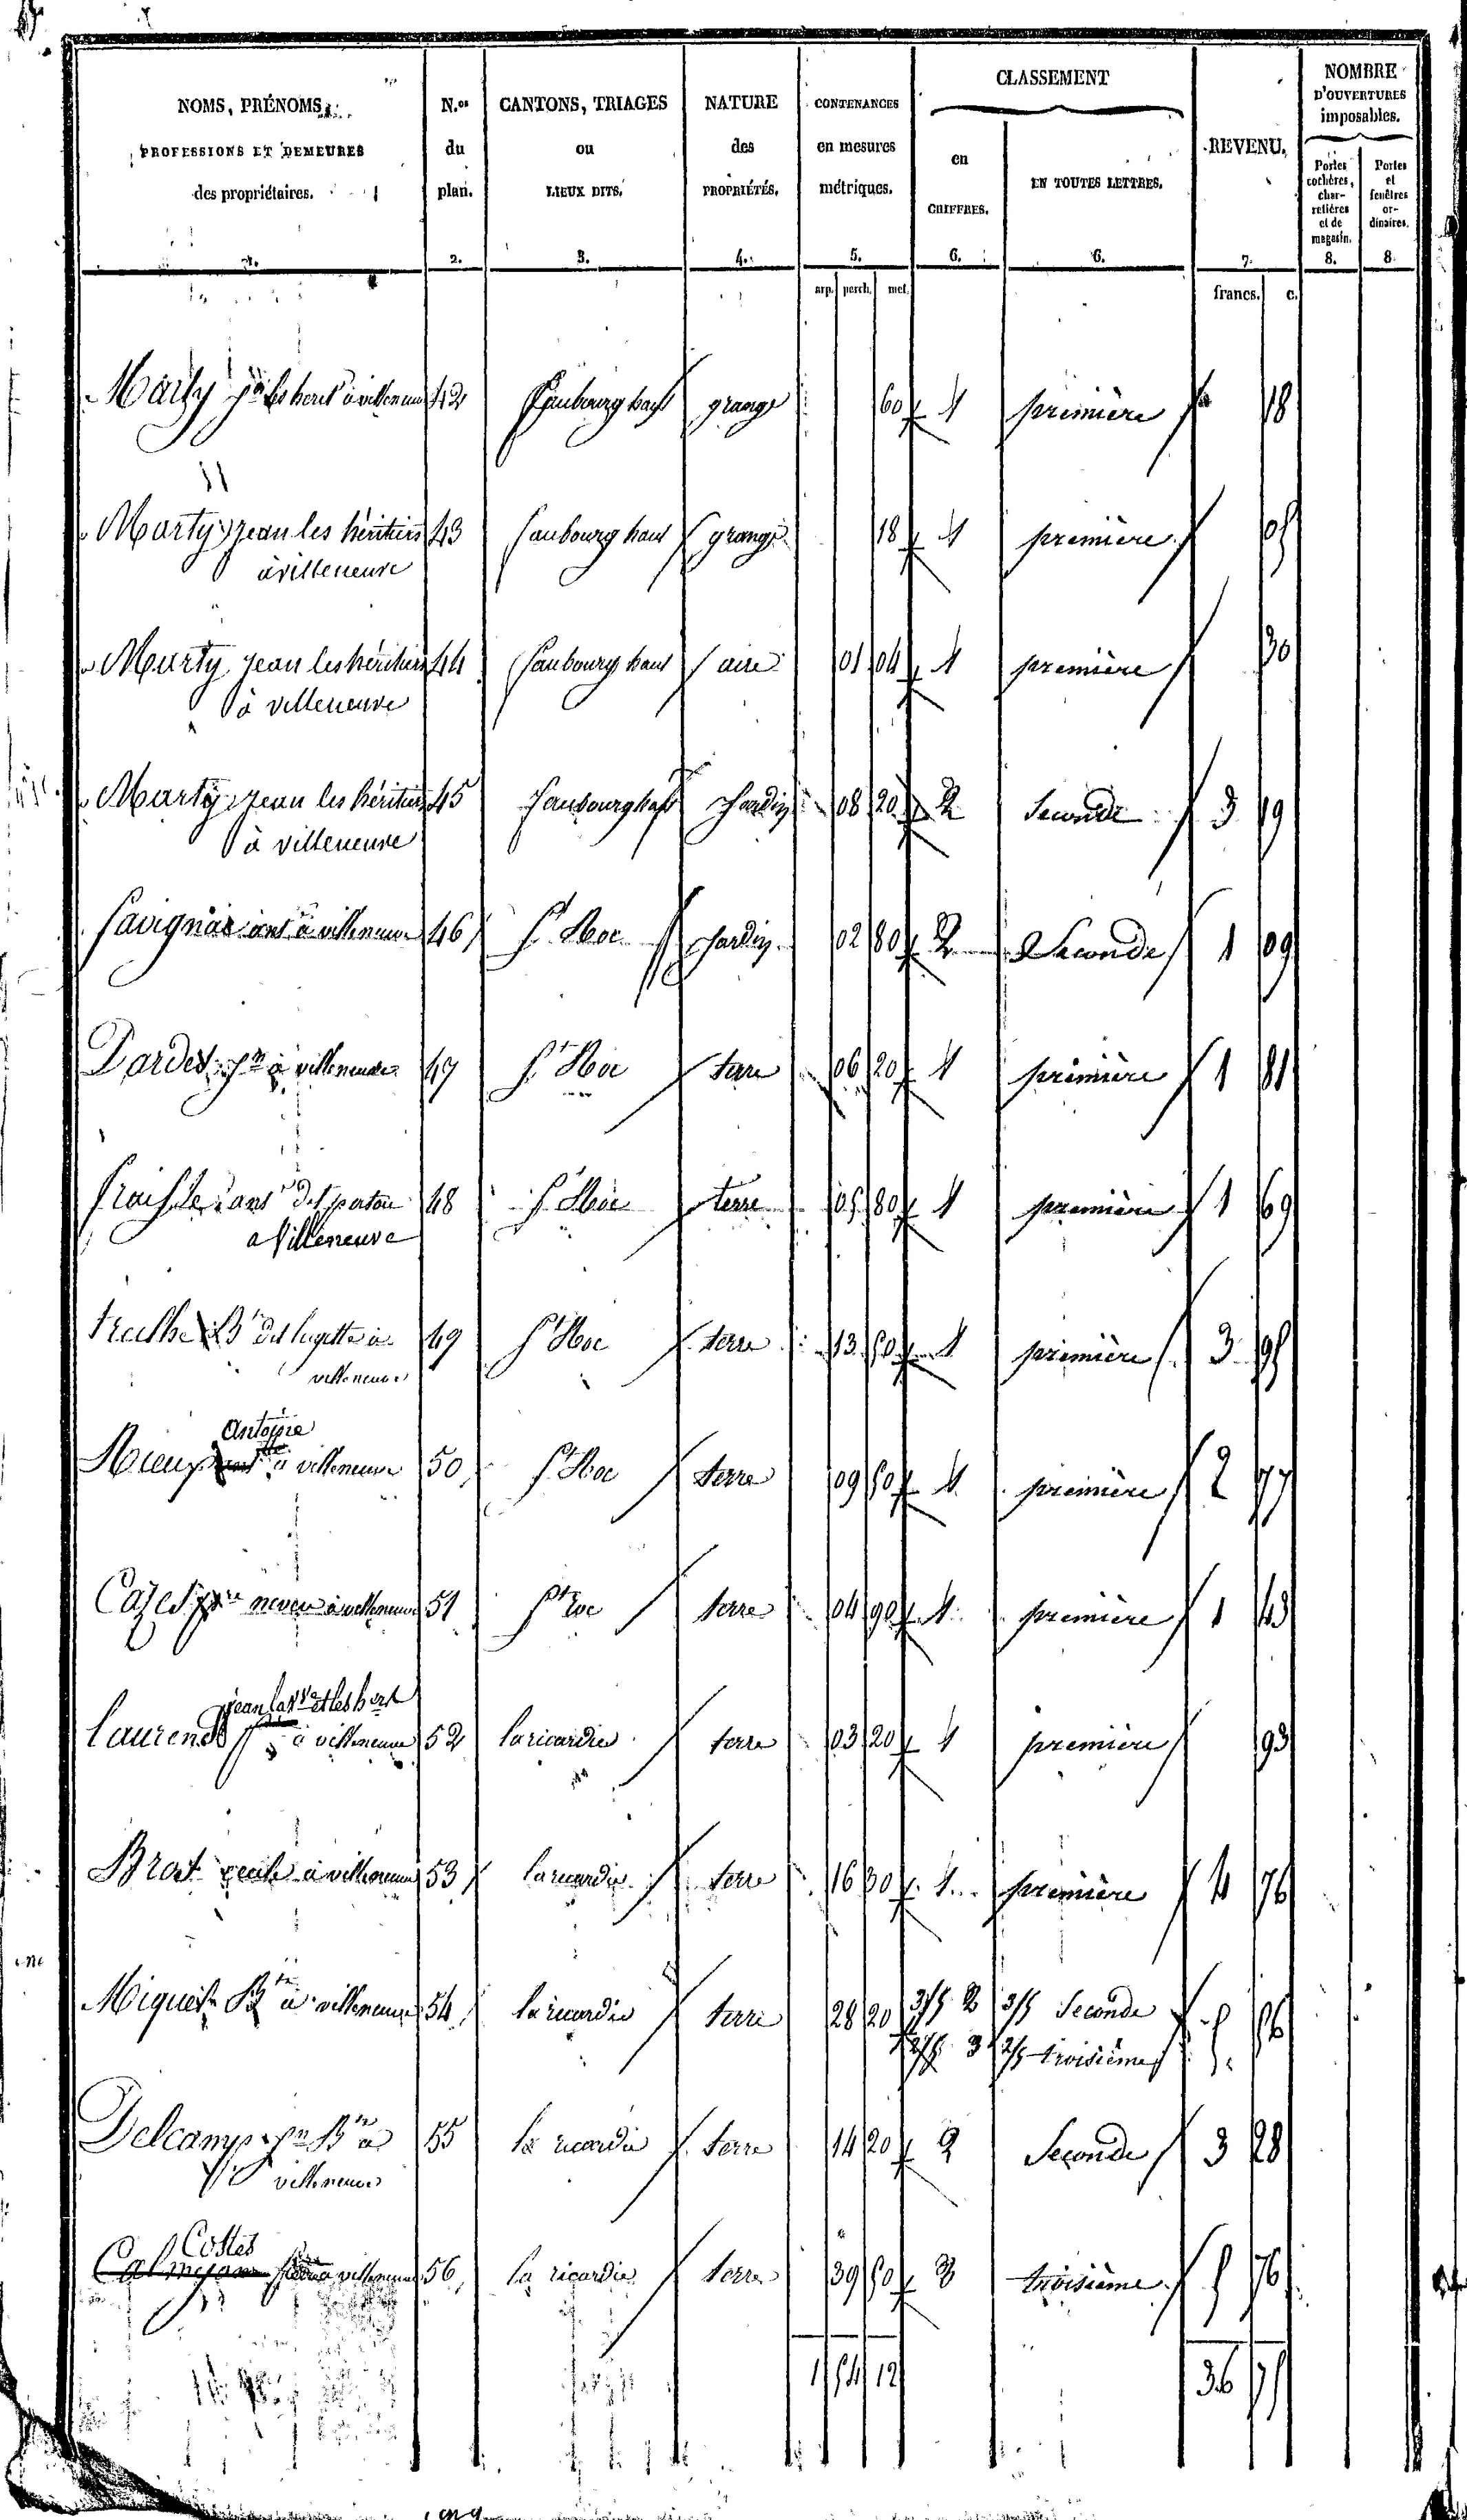 NOMS, PRÉNOMS,
PROFESSIONS ET DEMEURES
des propriétaires.
1.
N.os
du
plan.
2.
CANTONS, TRIAGES
ou
LIEUX DITS.
3.
NATURE
des
PROPRIÉTÉS.
4.
CONTENANCES
en mesures
métriques.
5.
arp. perch. met.
CLASSEMENT
en
CHIFFRES.
6.
EN TOUTES LETTRES.
6.
REVENU.
7.
francs. c.
NOMBRE
D'OUVERTURES
imposables.
Portes
cochères,
char-
retières
et de
magasin.
8.
Portes
et
fenêtres
or-
dinaires.
8.
Marty à villeneuve 42 faubourg haut grange 60 1 première 18
Marty jean les héritiers 43 faubourg haut grange 18 1 première 05
à villeneuve
Marty jean les héritiers 44 faubourg haut aire 01 04 1 première 30
à villeneuve
Marty jean les héritiers 45 faubourg haut Jardin 08 20 2 Seconde 3 19
à villeneuve
Savignac ant à villeneuve 46 St Roc Jardin 02 80 2 Seconde 1 09
Dardes à villeneuve 47 St Roc terre 06 20 1 première 1 81
ant dit 48 St Roc terre 05 80 1 première 1 69
a Villeneuve
dit à 49 St Roc terre 13 50 1 première 3 95
villeneuve
Antoine
à villeneuve 50 St Roc terre 09 50 1 première 2 77
Cazes neveu à villeneuve 51 St Roc terre 04 90 1 première 1 43
jean la et les
Laurens à villeneuve 52 la ricardie terre 03 20 1 première 93
Brost à villeneuve 53 la ricardie terre 16 30 1 première 4 76
Miquel Bte à villeneuve 54 la ricardie terre 28 20 3/5 2 3/5 Seconde 5 56
2/5 3 2/5 troisième
Delcamp Bte à 55 la ricardie terre 14 20 2 Seconde 3 28
villeneuve
Costes
à villeneuve 56 la ricardie terre 39 50 3 troisième 5 76
1 54 12 36 75